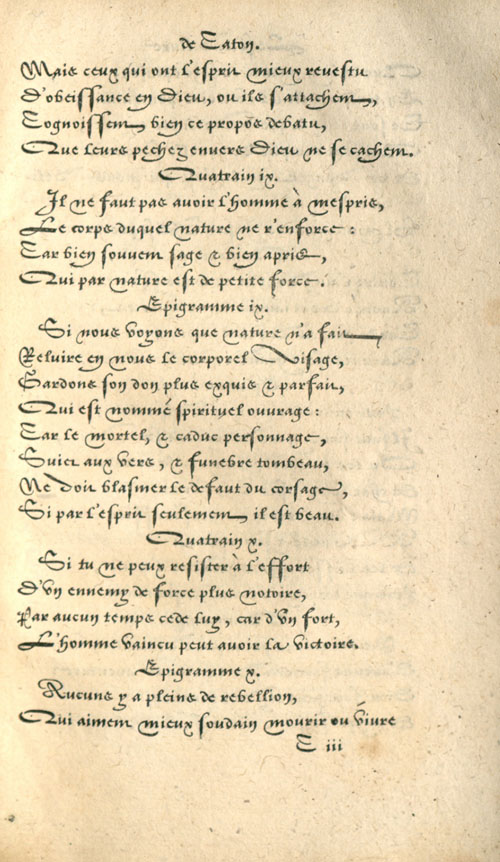 de Caton.
Mais ceux qui ont l'esprit mieux revestu
D'obeissance en Dieu, ou ils s'attachent,
Cognoissent bien ce propos debatu,
Que leurs pechez envers Dieu ne se cachent.
Quatrain ix.
Il ne faut pas avoir l'homme à mespris,
Le corps duquel nature ne r'enforce:
Car bien souvent sage & bien apris,
Qui par nature est de petite force.
Epigramme ix.
Si nous voyons que nature n'a fait
Reluire en nous le corporel visage,
Gardons son don plus exquis & parfait,
Qui est nommé spirituel ouvrage:
Car le mortel, & caduc personnage,
Suiet aux vers, & funebre tombeau,
Ne doit blasmer le defaut du corsage,
Si par l'esprit seulement il est beau.
Quatrain x.
Si tu ne peux resister à l'effort
D'vn ennemy de force plus notoire,
Par aucun temps cede luy, car d'vn fort,
L'homme vaincu peut avoir la victoire.
Epigramme x.
Aucuns y a pleins de rebellion,
Qui aiment mieux soudain mourir ou vivre
C iii